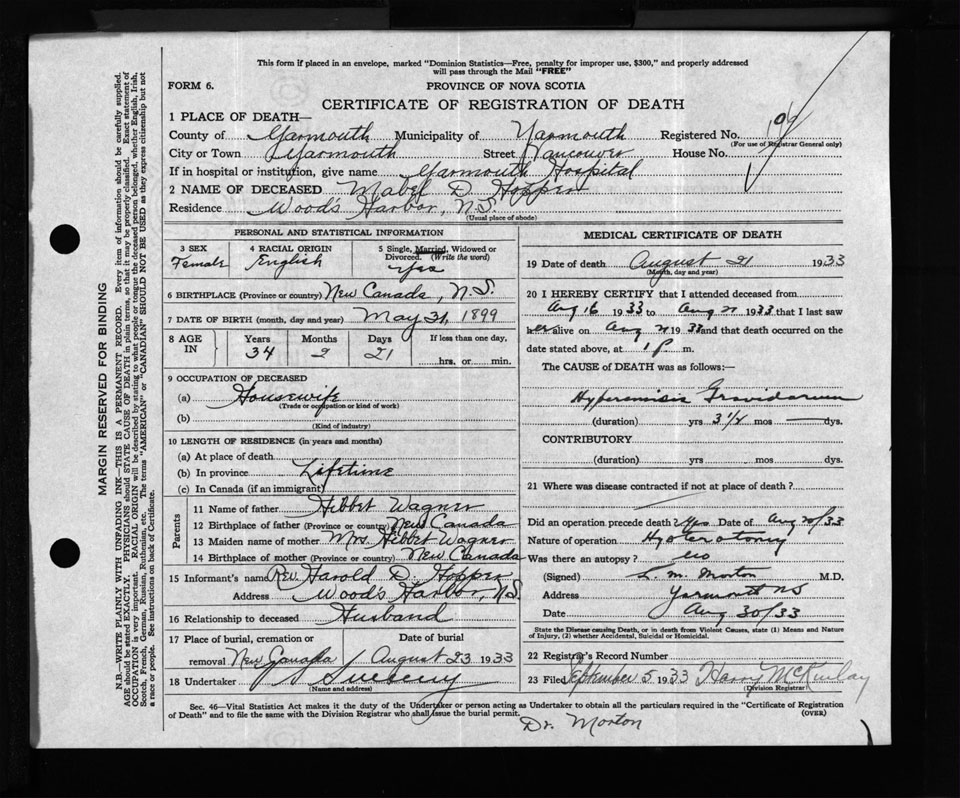 This form if placed in an envelope, marked "Dominion Statistics—Free, penalty for improper use, $300," and properly addressed
will pass through the Mail "FREE"
FORM 6.
PROVINCE OF NOVA SCOTIA
CERTIFICATE OF REGISTRATION OF DEATH
1 PLACE OF DEATH—
County of Yarmouth Municipality of Yarmouth Registered No.
(For use of Registrar General only)
City or Town Yarmouth Street Vancouver House No.
If in hospital or institution, give name Yarmouth Hospital
2 NAME OF DECEASED Mabel D. Hopper
Residence Wood's Harbor, N.S.
(Usual place of abode)
PERSONAL AND STATISTICAL INFORMATION
3 SEX
Female
4 RACIAL ORIGIN
English
5 Single, Married, Widowed or
Divorced. (Write the word)
Yes
6 BIRTHPLACE (Province or country) New Canada, N.S.
7 DATE OF BIRTH (month, day and year) May 31, 1899
8 AGE
IN
Years Months Days If less than one day,
34 2 21 hrs. or min.
9 OCCUPATION OF DECEASED
(a) Housewife
(Trade or occupation or kind of work)
(b)
(Kind of industry)
10 LENGTH OF RESIDENCE (in years and months)
(a) At place of death
(b) In province Lifetime
(c) In Canada (if an immigrant)
Parents
11 Name of father Hibbet Wagner
12 Birthplace of father (Province or country) New Canada
13 Maiden name of mother Mrs. Hibbet Wagner
14 Birthplace of mother (Province or country) New Canada
15 Informant's name Rev. Harold D. Hopper
Address Wood's Harbor, N.S.
16 Relationship to deceased Husband
17 Place of burial, cremation or Date of burial
removal New Canada August 23 1933
18 Undertaker Sweeny
(Name and address)
MEDICAL CERTIFICATE OF DEATH
19 Date of death August 21 1933
(Month, day and year)
20 I HEREBY CERTIFY that I attended deceased from
Aug 16 1933 to Aug 21 1933 that I last saw
her alive on Aug 21 1933 and that death occurred on
date stated above, at 1 p. m.
The CAUSE of DEATH was as follows:—
Hyperemisis Gravidarum
(duration) yrs 3 1/2 mos dys.
CONTRIBUTORY
(duration) yrs mos dys.
21 Where was disease contracted if not at place of death?
Did an operation precede death? Yes Date of Aug 20/33
Nature of operation Hysterotomy
Was there an autopsy? no
(Signed) L. M. Morton M.D.
Address Yarmouth NS
Date Aug 30/33
State the Disease causing Death, or in death from Violent Causes, state (1) Means and Nature
of Injury, (2) whether Accidental, Suicidal or Homicidal.
22 Registrar's Record Number
23 Filed September 5 1933 Harry McKinlay
(Division Registrar)
Sec. 46—Vital Statistics Act makes it the duty of the Undertaker or person acting as Undertaker to obtain all the particulars required in the "Certificate of Registration
of Death" and to file the same with the Division Registrar who shall issue the burial permit. (OVER)
Dr. Morton
MARGIN RESERVED FOR BINDING
N.B.—WRITE PLAINLY WITH UNFADING INK—THIS IS A PERMANENT RECORD. Every item of information should be carefully supplied.
AGE should be stated EXACTLY. PHYSICIANS should STATE CAUSE OF DEATH in plain terms, so that it may be properly classified. Exact statement of
OCCUPATION is very important. RACIAL ORIGIN will be described by stating to what people or tongue the deceased person belonged, whether English, Irish,
Scotch, French, German, Russian, Ruthenian, etc. The terms "AMERICAN" or "CANADIAN" SHOULD NOT BE USED as they express citizenship but not
a race or people. See instructions on back of Certificate.